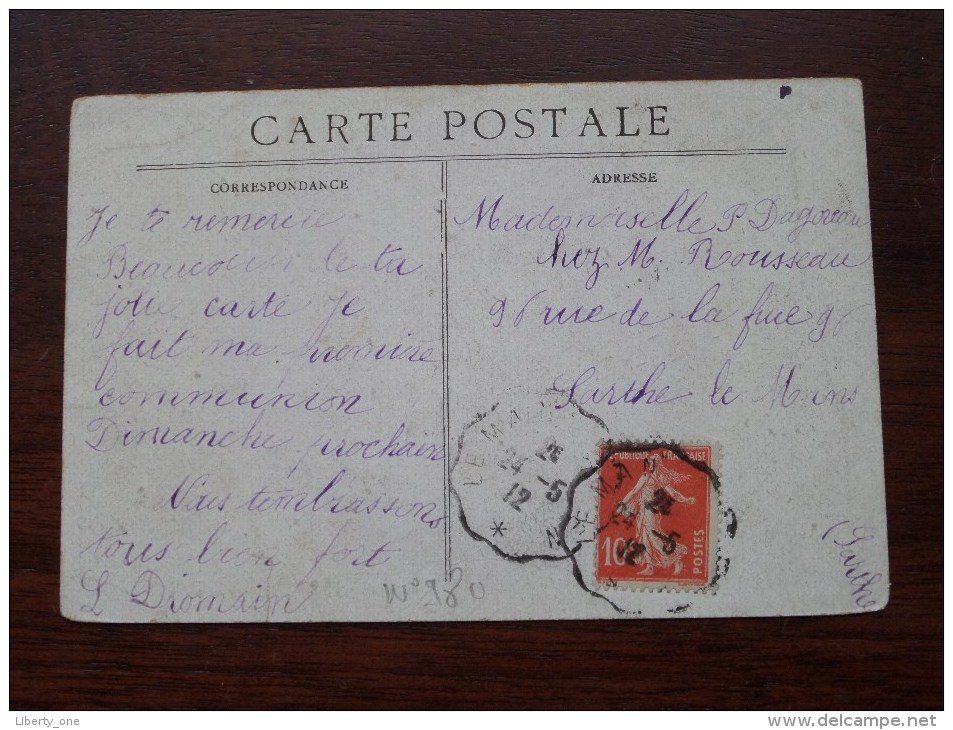 CARTE POSTALE
CORRESPONDANCE
Je te remercie
Beaucoup de ta
jolie carte Je
fait ma premiere
communion
Dimanche prochain
Nous tembrassons
tous bien fort
L Diomain
ADRESSE
Mademoiselle P Dagoreau
chez M. Rousseau
96 rue de la 96
Sarthe le Mans
(Sarthe
LE MA
24 -5
12
REPUBLIQUE FRANÇAISE
10c
POSTES
LE MAN
24 -5
12
Liberty_one
www.delcampe.net